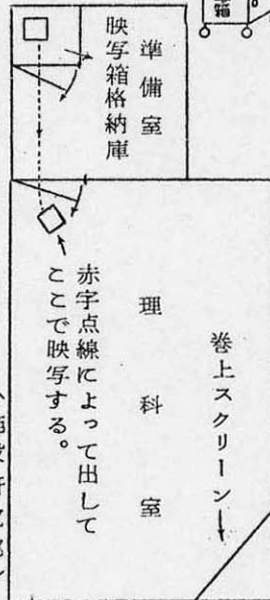 準備室
映写箱格納庫
巻上スクリーン
理科室
赤字点線によって出して
ここで映写する。